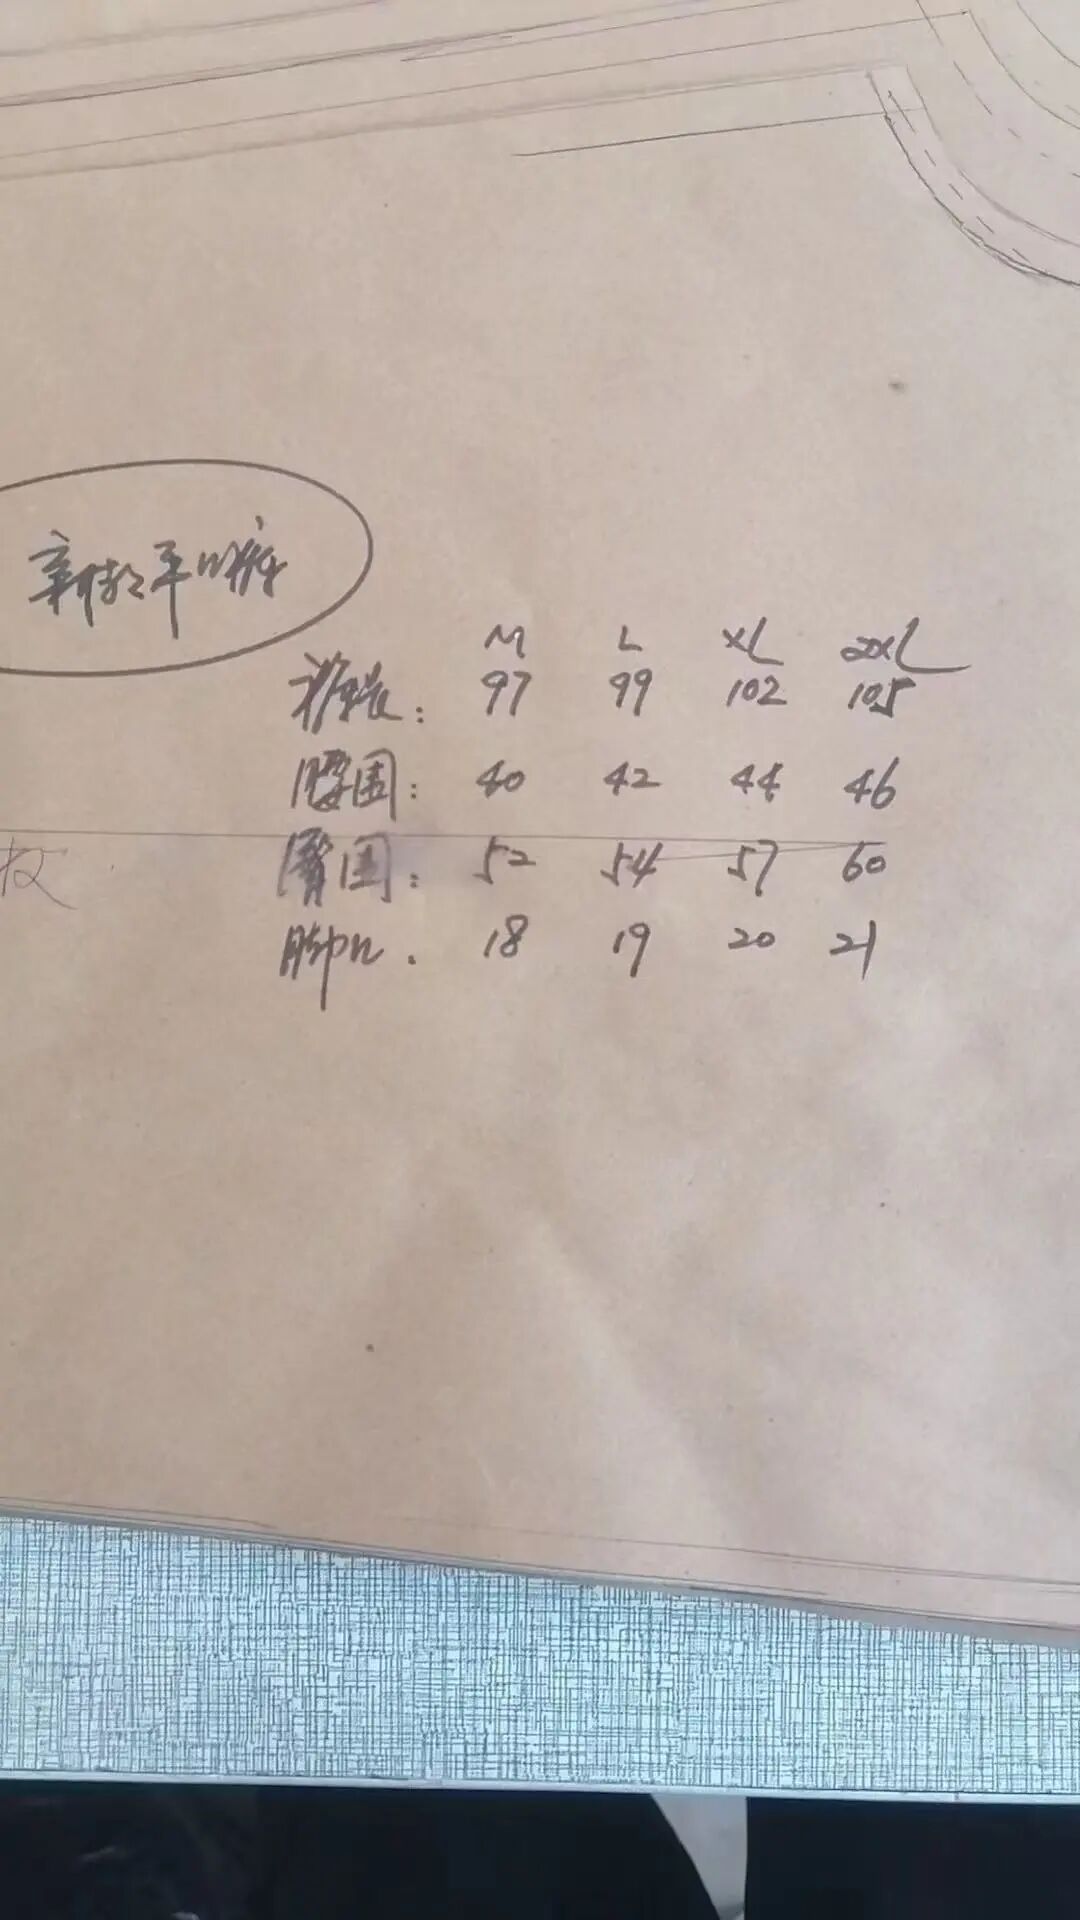 M L XL 2XL
裤长: 97 99 102 105
腰围: 40 42 44 46
臀围: 52 54 57 60
脚口. 18 19 20 21